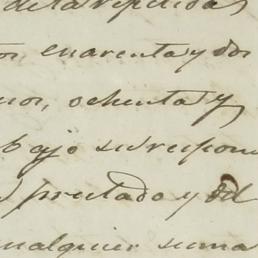 de la repetida
cuarenta y dos
ochenta y
bajo su respon
prestado y
cualquier suma